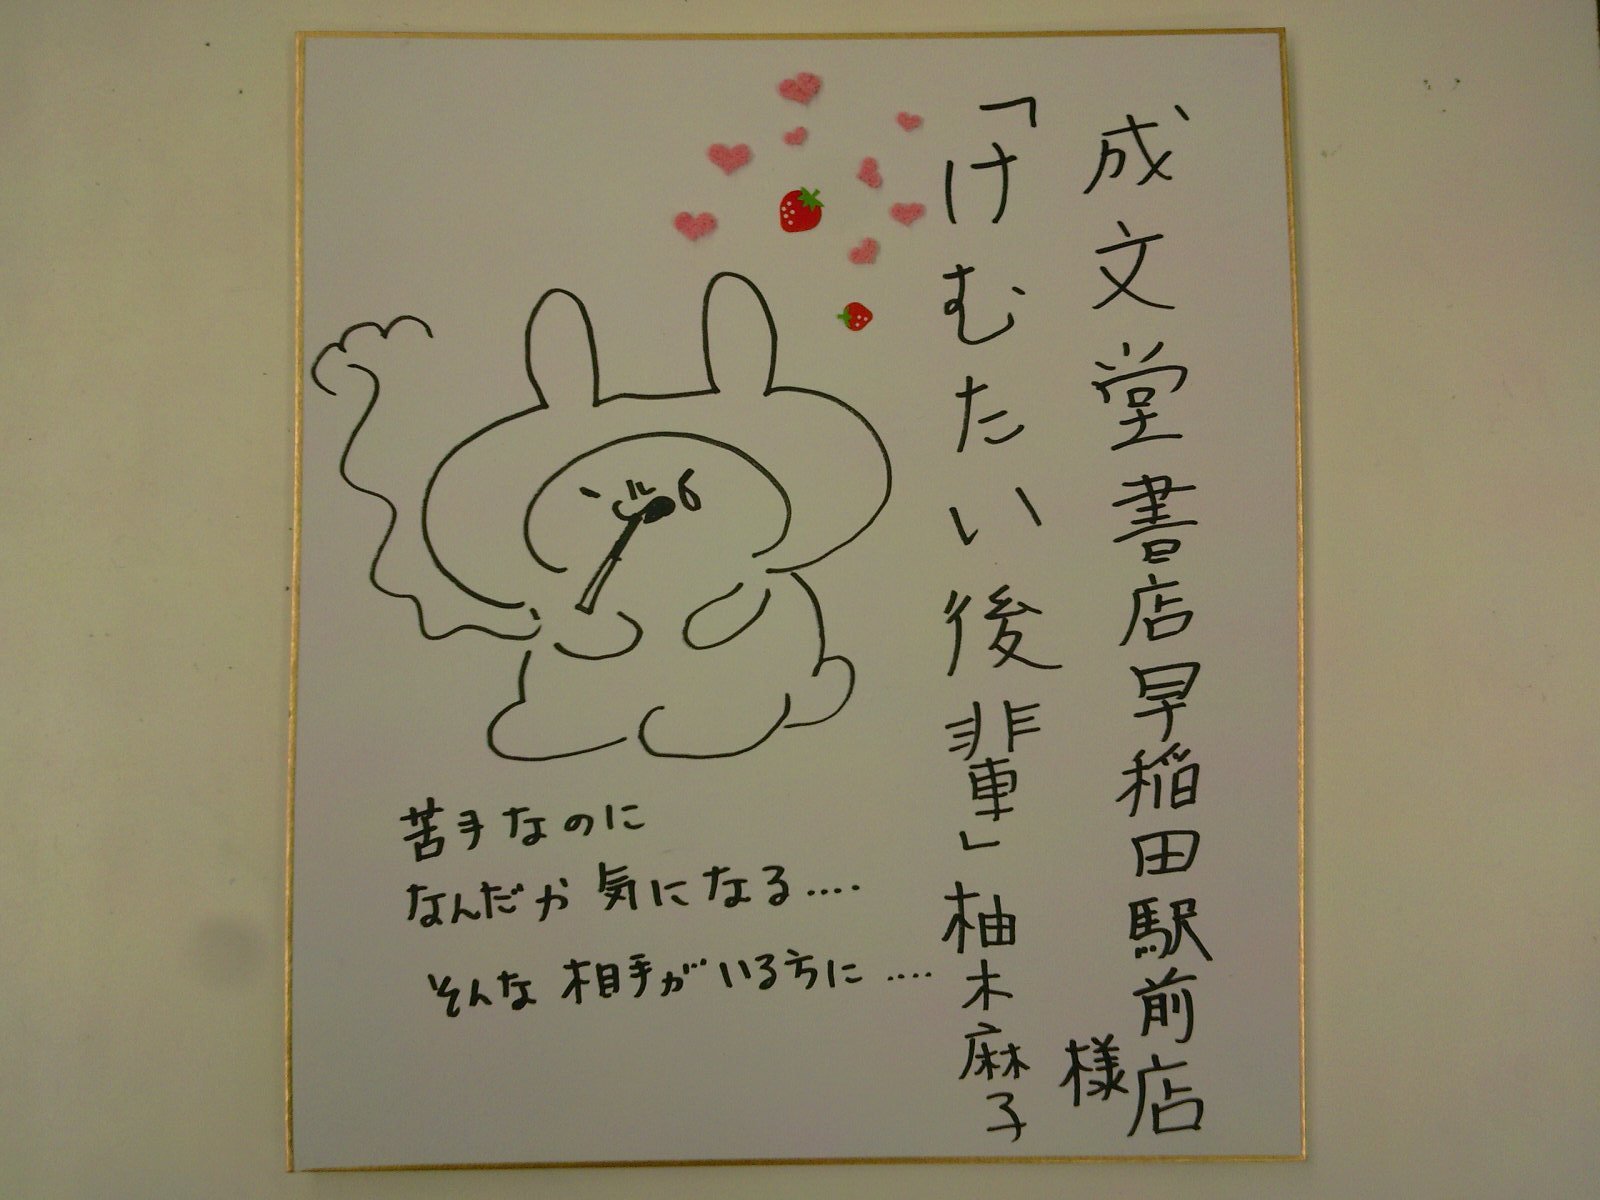 成文堂書店早稲田駅前店
様
「けむたい後輩」柚木麻子
苦手なのに
なんだか気になる‥‥
そんな相手がいる方に‥‥